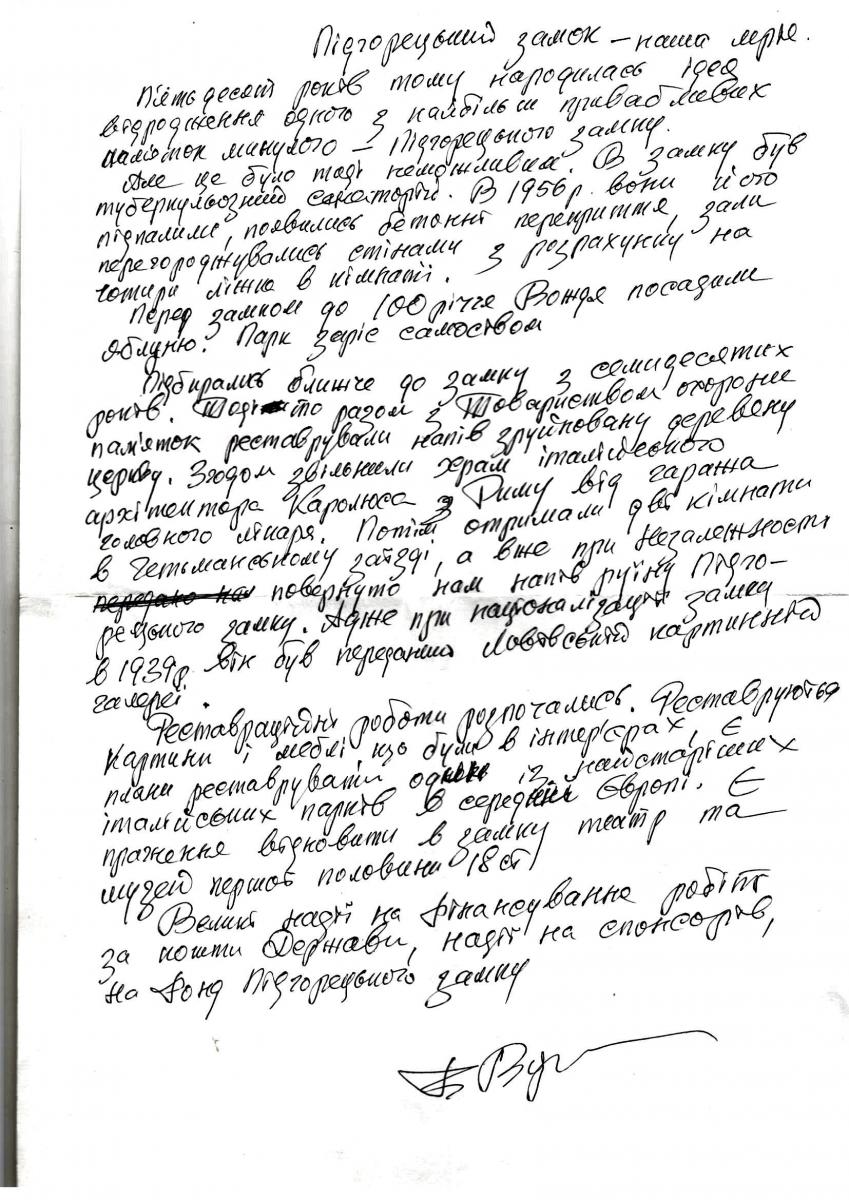 Підгорецький замок – наша мрія.
П'ятьдесят років тому народилась ідея
відродження одного з найбільш привабливих
пам'яток минулого – Підгорецького замку.
Але це було тоді неможливим. В замку був
туберкульозний санаторій. В 1956 р. вони його
підпалили, появились бетонні перекриття, зали
перегороджувались стінами з розрахунку на
чотири ліжка в кімнаті.
Перед замком до 100 річчя Вождя посадили
яблуню. Парк заріс самосівом
Підбирались ближче до замку з семидесятих
років. Тоді то разом з Товариством охорони
пам'яток реставрували напів зруйновану деревяну
церкву. Згодом звільнили храм італійського
архітектора Каролюса з Риму від гаража
головного лікаря. Потім отримали дві кімнати
в Гетьманському заїзді, а вже при Незалежности
повернуто нам напів руїну Підго-
рецького замку. Адже при націоналізації замку
в 1939 р. він був переданий Львівській картинній
галереї.
Реставраційні роботи розпочались. Реставруються
картини і меблі, що були в інтер'єрах, є
плани реставрувати один із найстаріших
італійських парків в середній Європі. Є
прагнення відновити в замку театр та
музей першої половини 18 ст.
Великі надії на фінансування робіт
за кошти Держави, надії на спонсорів,
на Фонд Підгорецького замку